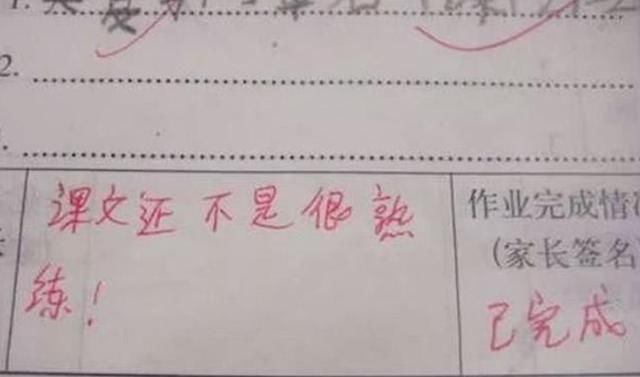 1.
2.
课文还不是很熟
练！
作业完成情
（家长签名
已完成